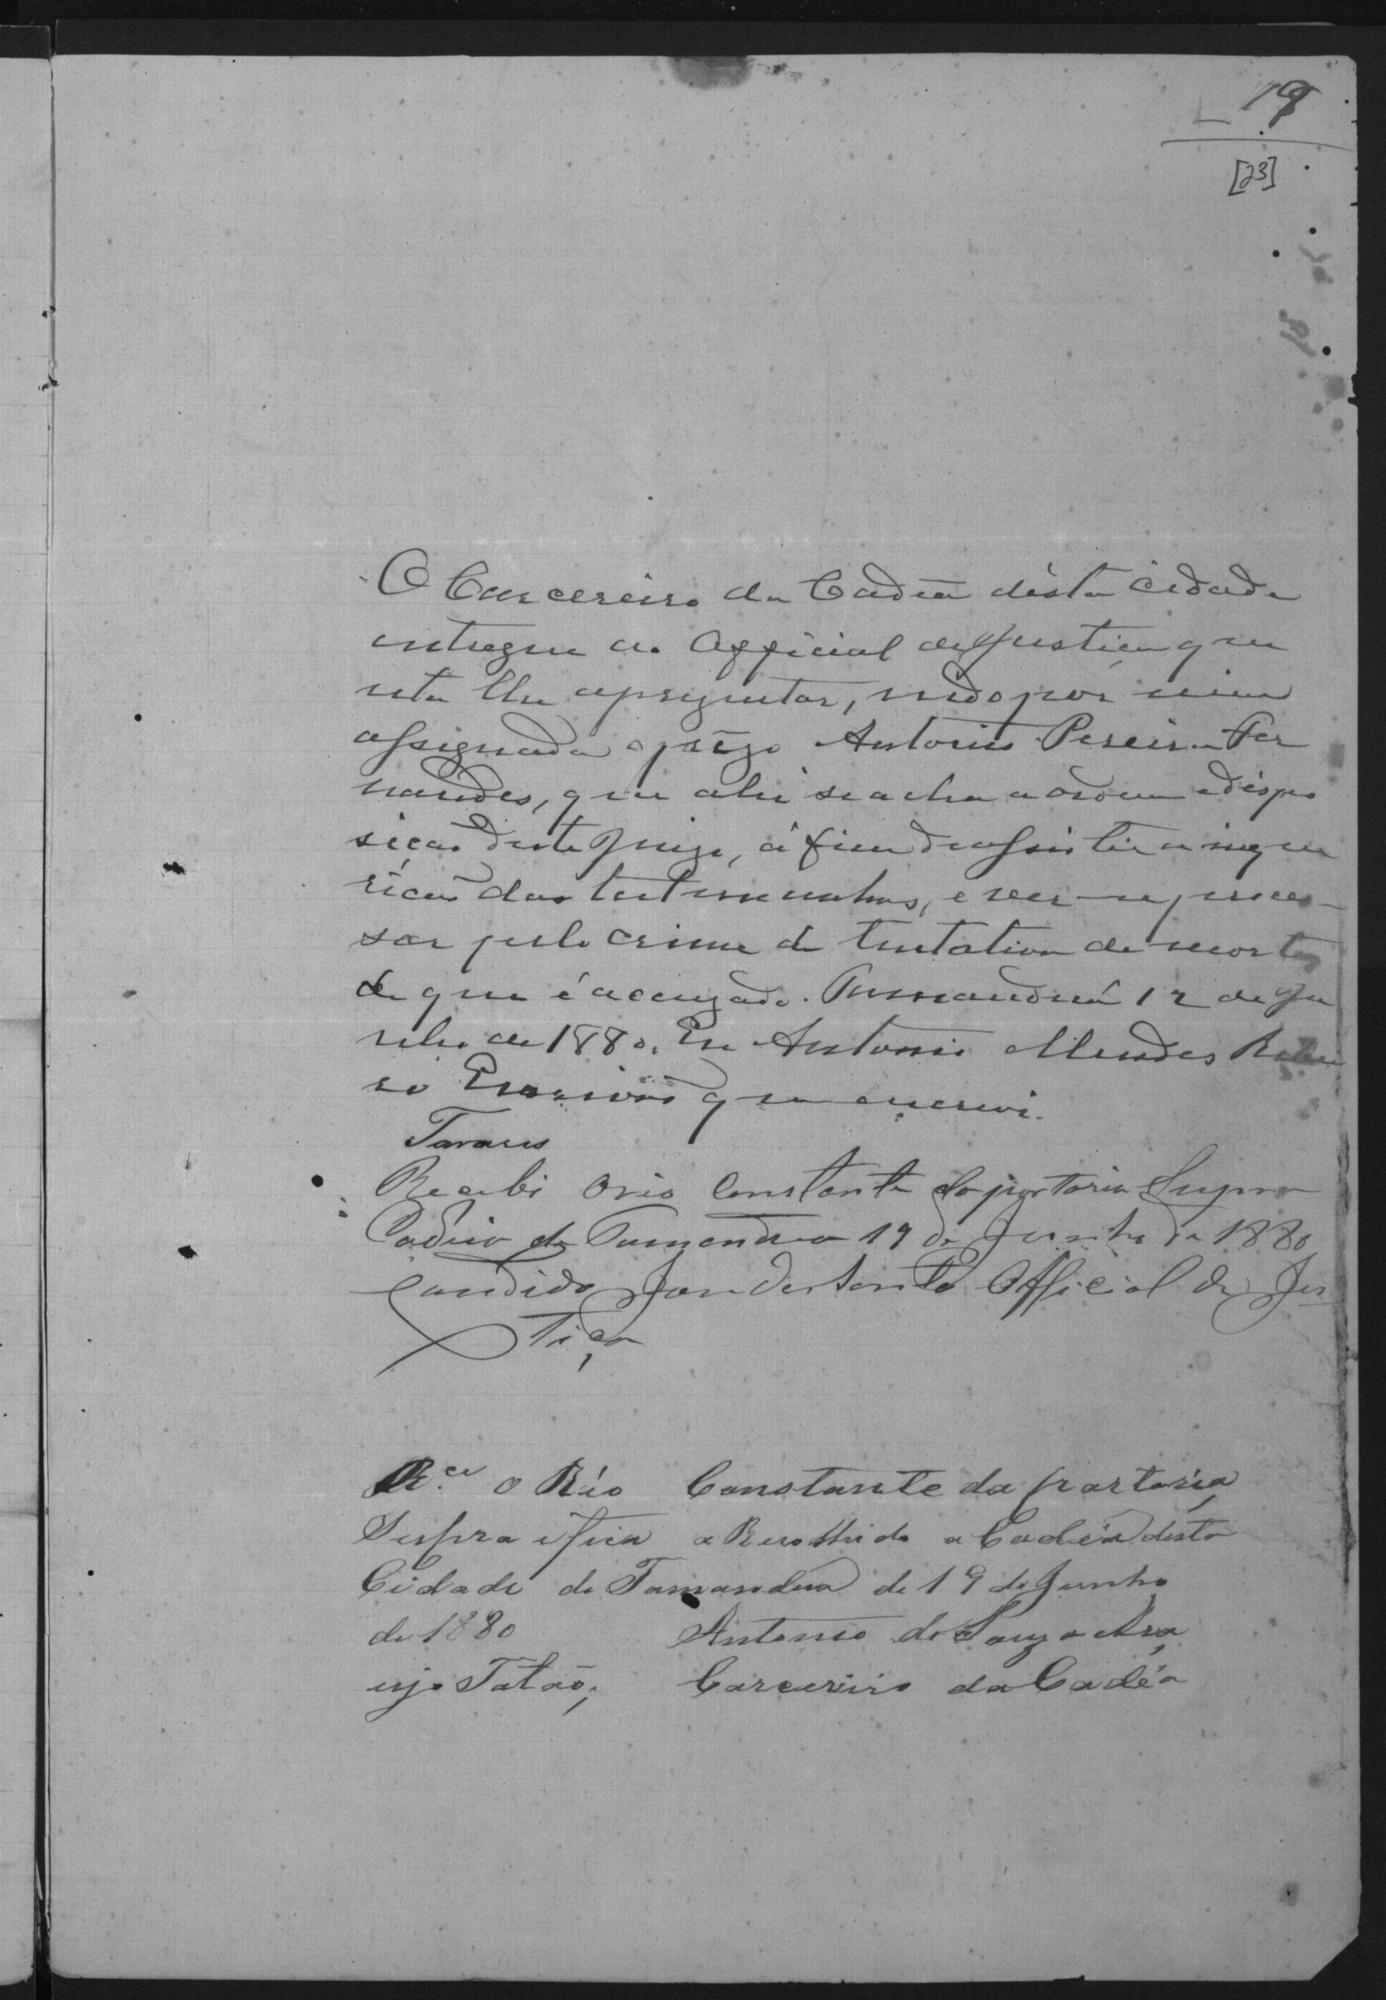 19
[23]
O Carcereiro da Cadêa désta cidade
entregue ao Official de Justiça que
esta lhe aprezentar, indo por mim
assignada o prêzo Antonio Pereira Fer
nandes, que ahi se acha a ordem e dispo
sição deste Juizo, á fim de assistir a inqui
rição das testemunhas, e ver-se proces-
sar pelo crime de tentativa de morte
de que é acuzado. Tamanduá 12 de Ju
nho de 1880. Eu Antonio Mendes Ribei
ro Escrivão que escrevi.
Tavares
Recebi o rio Constante da portaria Supra
Cadeia de Tamandua 19 de Junho de 1880
Candido José dos Santos Official de Jus
tiça
Rce. o Réo Constante da portaria
Supra e fica a Recolhido a Cadêa desta
Cidade de Tamanduá de 19 de Junho
de 1880 Antonio de Souza Ara
ujo Tatão, Carcereiro da Cadêa